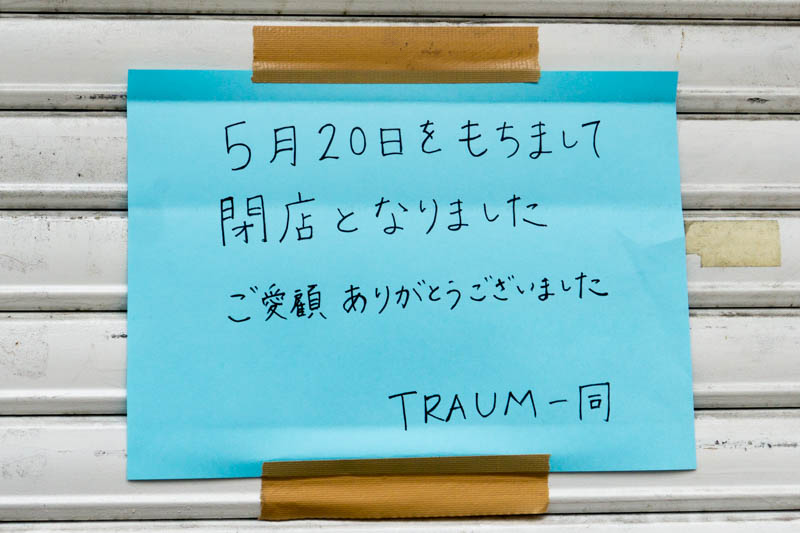 5月20日をもちまして
閉店となりました
ご愛顧 ありがとうございました
TRAUM一同